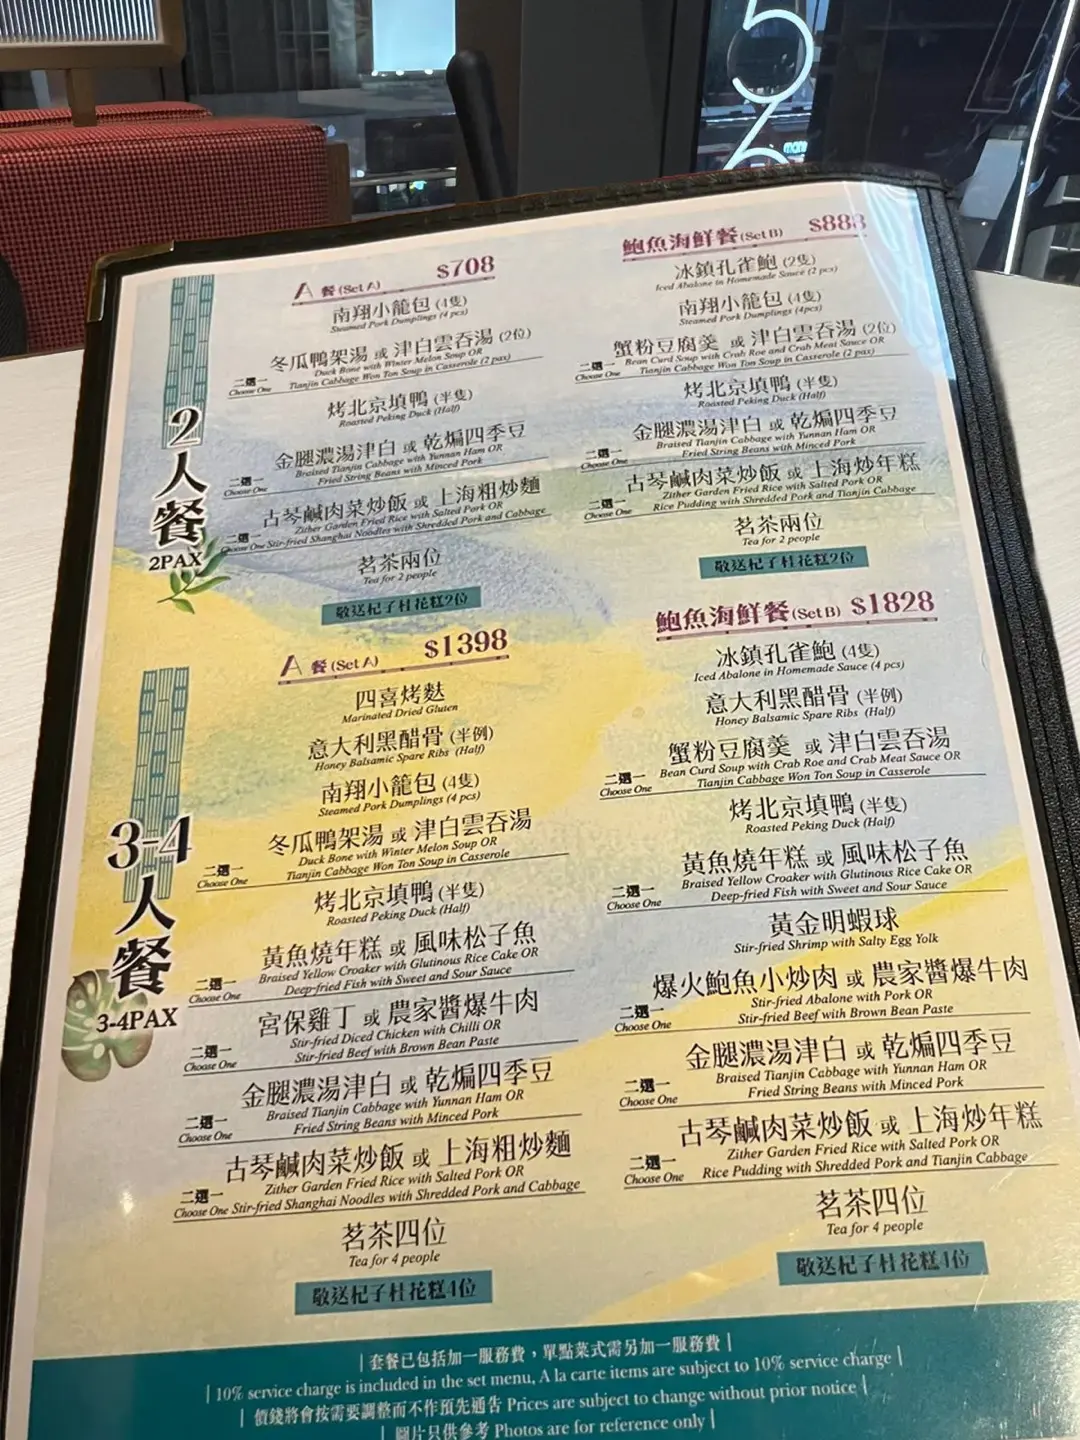 2人餐
2PAX
A 餐 (Set A) $708
南翔小籠包 (4隻)
Steamed Pork Dumplings (4 pcs)
冬瓜鴨架湯 或 津白雲吞湯 (2位)
Duck Bone with Winter Melon Soup OR
二選一
Choose One
Tianjin Cabbage Won Ton Soup in Casserole (2 pax)
烤北京填鴨 (半隻)
Roasted Peking Duck (Half)
金腿濃湯津白 或 乾煸四季豆
Braised Tianjin Cabbage with Yunnan Ham OR
二選一
Choose One
Fried String Beans with Minced Pork
古琴鹹肉菜炒飯 或 上海粗炒麵
Zither Garden Fried Rice with Salted Pork OR
二選一
Choose One
Stir-fried Shanghai Noodles with Shredded Pork and Cabbage
茗茶兩位
Tea for 2 people
敬送杞子桂花糕2位
鮑魚海鮮餐 (Set B) $888
冰鎮孔雀鮑 (2隻)
Iced Abalone in Homemade Sauce (2 pcs)
南翔小籠包 (4隻)
Steamed Pork Dumplings (4pcs)
蟹粉豆腐羹 或 津白雲吞湯 (2位)
Bean Curd Soup with Crab Roe and Crab Meat Sauce OR
二選一
Choose One
Tianjin Cabbage Won Ton Soup in Casserole (2 pax)
烤北京填鴨 (半隻)
Roasted Peking Duck (Half)
金腿濃湯津白 或 乾煸四季豆
Braised Tianjin Cabbage with Yunnan Ham OR
二選一
Choose One
Fried String Beans with Minced Pork
古琴鹹肉菜炒飯 或 上海炒年糕
Zither Garden Fried Rice with Salted Pork OR
二選一
Choose One
Rice Pudding with Shredded Pork and Tianjin Cabbage
茗茶兩位
Tea for 2 people
敬送杞子桂花糕2位
3-4人餐
3-4PAX
A 餐 (Set A) $1398
四喜烤麩
Marinated Dried Gluten
意大利黑醋骨 (半例)
Honey Balsamic Spare Ribs (Half)
南翔小籠包 (4隻)
Steamed Pork Dumplings (4 pcs)
冬瓜鴨架湯 或 津白雲吞湯
Duck Bone with Winter Melon Soup OR
二選一
Choose One
Tianjin Cabbage Won Ton Soup in Casserole
烤北京填鴨 (半隻)
Roasted Peking Duck (Half)
黃魚燒年糕 或 風味松子魚
Braised Yellow Croaker with Glutinous Rice Cake OR
二選一
Choose One
Deep-fried Fish with Sweet and Sour Sauce
宮保雞丁 或 農家醬爆牛肉
Stir-fried Diced Chicken with Chilli OR
二選一
Choose One
Stir-fried Beef with Brown Bean Paste
金腿濃湯津白 或 乾煸四季豆
Braised Tianjin Cabbage with Yunnan Ham OR
二選一
Choose One
Fried String Beans with Minced Pork
古琴鹹肉菜炒飯 或 上海粗炒麵
Zither Garden Fried Rice with Salted Pork OR
二選一
Choose One
Stir-fried Shanghai Noodles with Shredded Pork and Cabbage
茗茶四位
Tea for 4 people
敬送杞子桂花糕4位
鮑魚海鮮餐 (Set B) $1828
冰鎮孔雀鮑 (4隻)
Iced Abalone in Homemade Sauce (4 pcs)
意大利黑醋骨 (半例)
Honey Balsamic Spare Ribs (Half)
蟹粉豆腐羹 或 津白雲吞湯
Bean Curd Soup with Crab Roe and Crab Meat Sauce OR
二選一
Choose One
Tianjin Cabbage Won Ton Soup in Casserole
烤北京填鴨 (半隻)
Roasted Peking Duck (Half)
黃魚燒年糕 或 風味松子魚
Braised Yellow Croaker with Glutinous Rice Cake OR
二選一
Choose One
Deep-fried Fish with Sweet and Sour Sauce
黃金明蝦球
Stir-fried Shrimp with Salty Egg Yolk
爆火鮑魚小炒肉 或 農家醬爆牛肉
Stir-fried Abalone with Pork OR
二選一
Choose One
Stir-fried Beef with Brown Bean Paste
金腿濃湯津白 或 乾煸四季豆
Braised Tianjin Cabbage with Yunnan Ham OR
二選一
Choose One
Fried String Beans with Minced Pork
古琴鹹肉菜炒飯 或 上海炒年糕
Zither Garden Fried Rice with Salted Pork OR
二選一
Choose One
Rice Pudding with Shredded Pork and Tianjin Cabbage
茗茶四位
Tea for 4 people
敬送杞子桂花糕4位
| 套餐已包括加一服務費，單點菜式需另加一服務費 |
| 10% service charge is included in the set menu, A la carte items are subject to 10% service charge |
| 價錢將會按需要調整而不作預先通告 Prices are subject to change without prior notice |
| 圖片只供參考 Photos are for reference only |